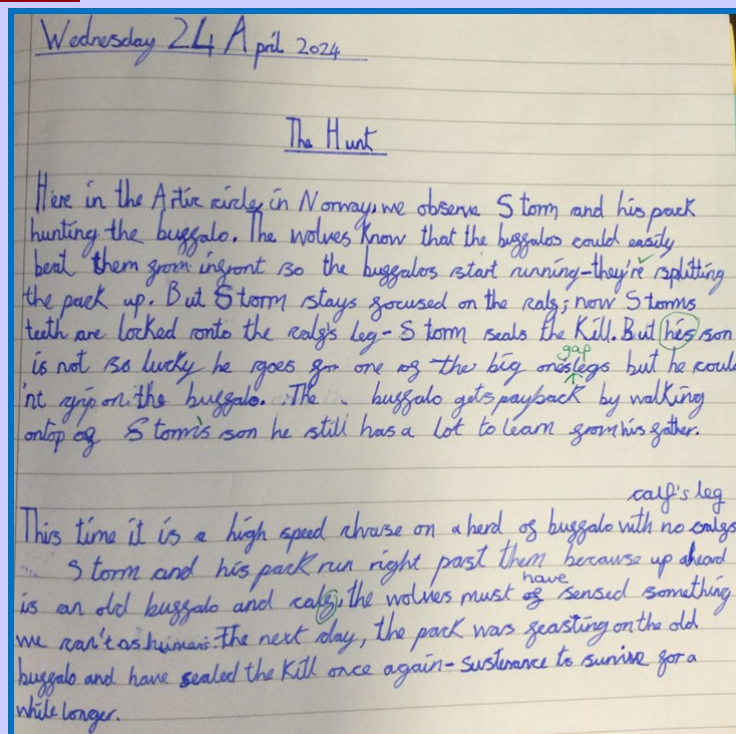 Wednesday 24 April 2024
The Hunt
Here in the Artic circle, in Norway, we observe Storm and his pack
hunting the buffalo. The wolves know that the buffalos could easily
beat them from infront so the buffalos start running-they're splitting
the pack up. But Storm stays focused on the calf; now Storms
teeth are locked onto the calf's leg-Storm seals the Kill. But his son
is not so lucky he goes for one of the big ones legs but he could
gap
'nt grip on the buffalo. The buffalo gets payback by walking
ontop of Storm's son he still has a lot to learn from his father.
calf's leg
This time it is a high speed chrase on a herd of buffalo with no calfs
Storm and his pack run right past them because up ahead
is an old buffalo and calf, the wolves must of sensed something
have
we can't as humans. The next day, the pack was feasting on the old
buffalo and have sealed the kill once again-sustenance to survive for a
while longer.